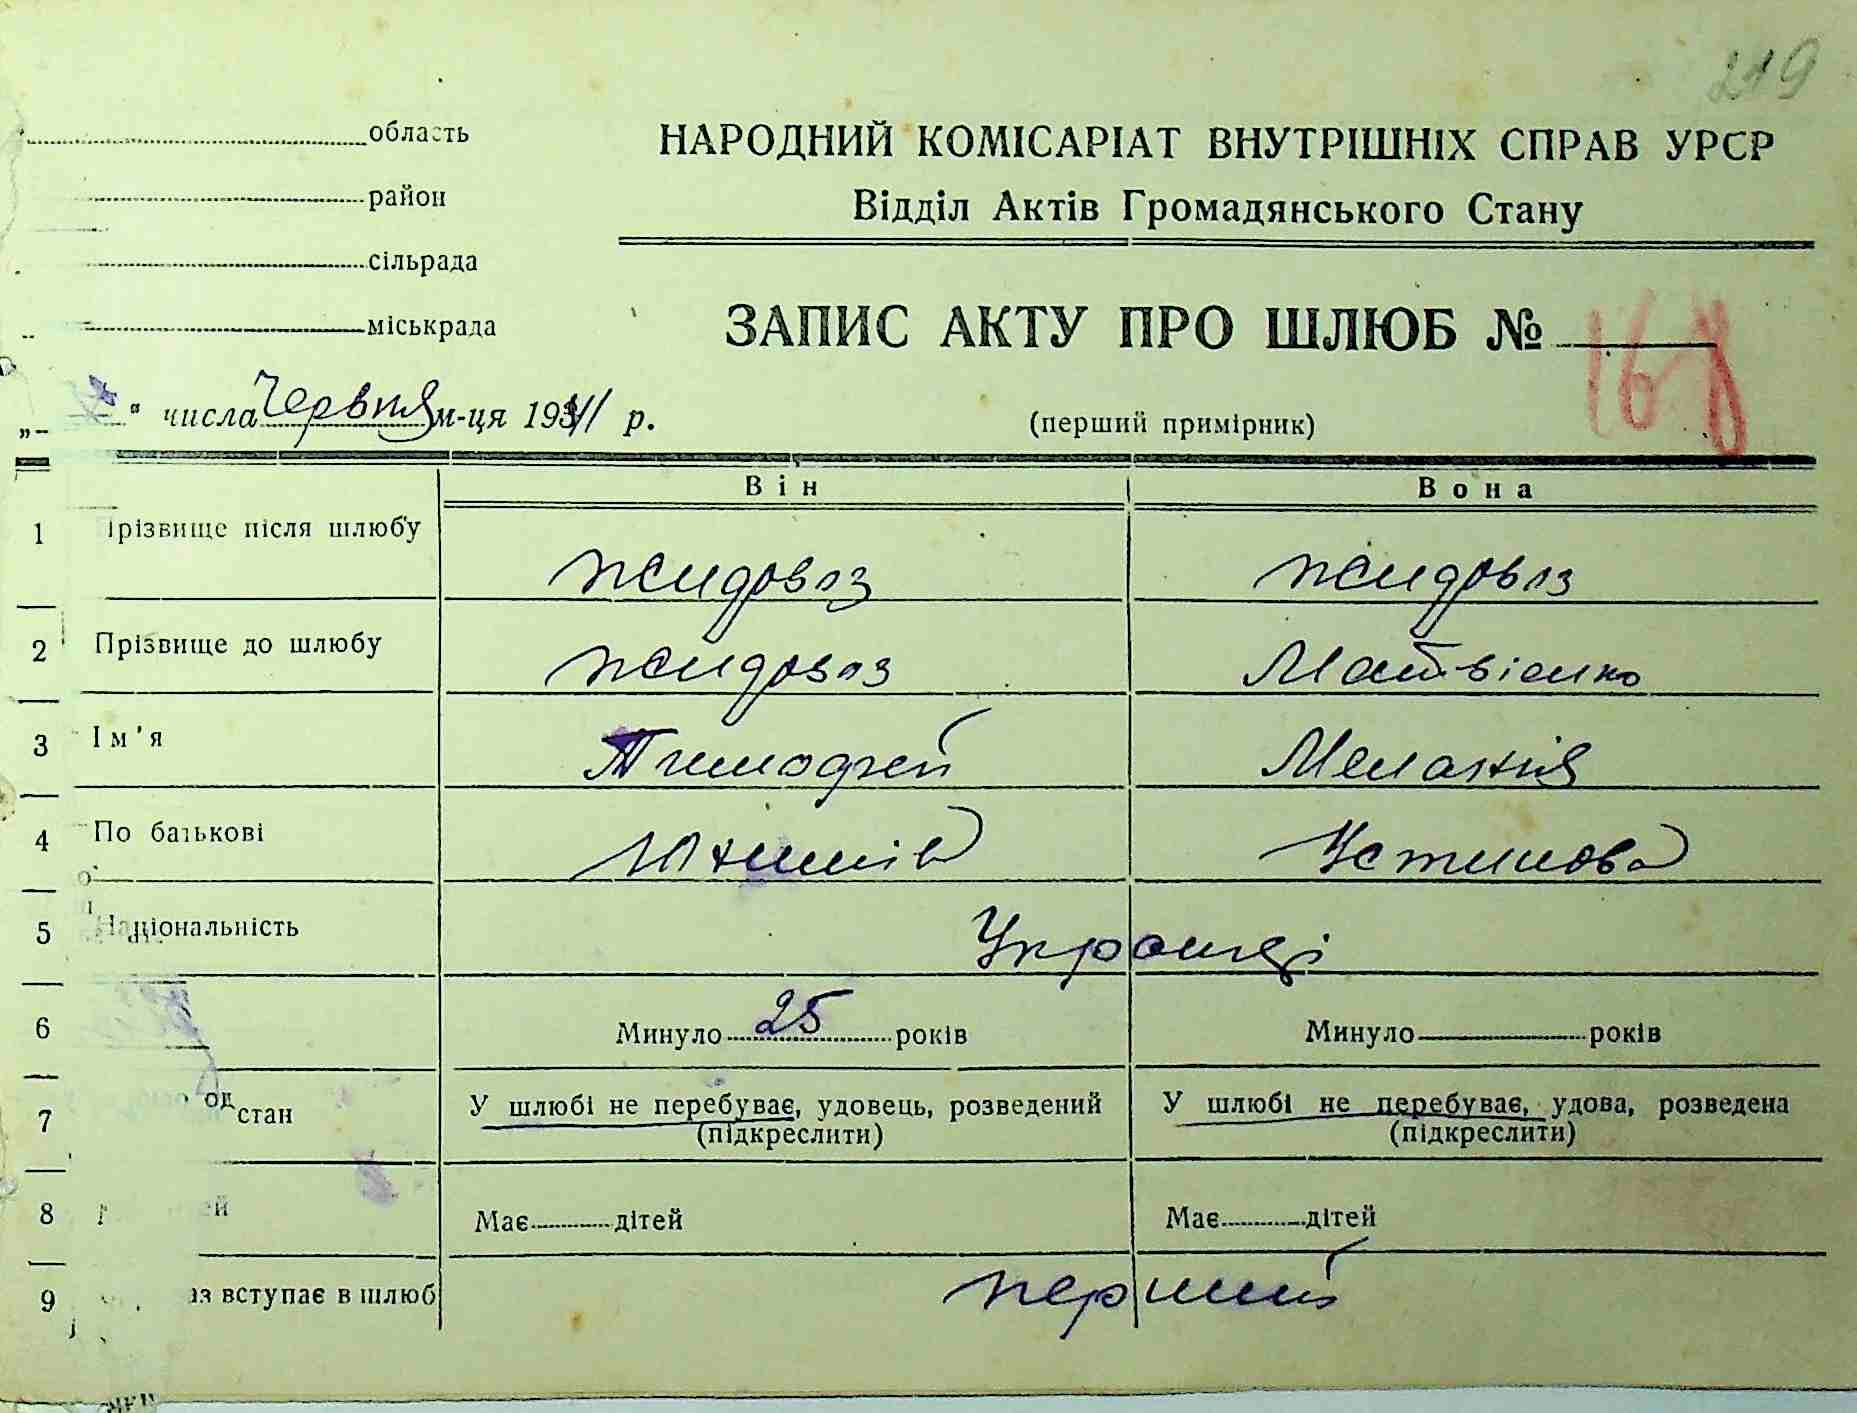 219
область
НАРОДНИЙ КОМІСАРІАТ ВНУТРІШНІХ СПРАВ УРСР
район
Відділ Актів Громадянського Стану
сільрада
міськрада
ЗАПИС АКТУ ПРО ШЛЮБ № 168
„ “ числа Червня м-ця 1941 р.
(перший примірник)
Він Вона
1 Прізвище після шлюбу Жидовяз Жидовяз
2 Прізвище до шлюбу Жидовяз Матвієнко
3 Ім'я Тимофей Меланія
4 По батькові Юхимів Устинова
5 Національність Українці
6 Минуло 25 років Минуло років
7 стан У шлюбі не перебуває, удовець, розведений У шлюбі не перебуває, удова, розведена
(підкреслити) (підкреслити)
8 Має дітей Має дітей
9 вступає в шлюб перший